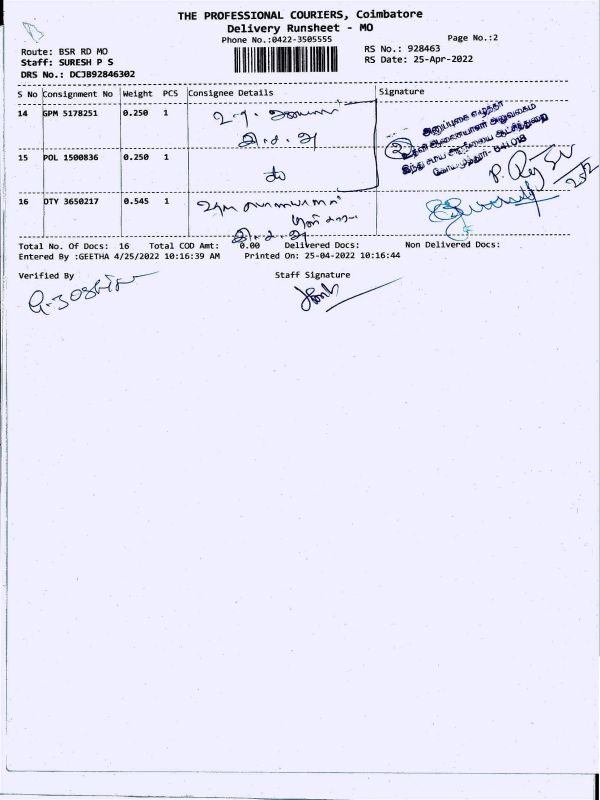 THE PROFESSIONAL COURIERS, Coimbatore
Delivery Runsheet - MO
Phone No.:0422-3505555
Page No.:2
Route: BSR RD MO
RS No.: 928463
Staff: SURESH P S
RS Date: 25-Apr-2022
DRS No.: DCJB92846302
S No Consignment No Weight PCS Consignee Details Signature
14 GPM 5178251 0.250 1
உ.ஆ. ஆணையர்
இ.ச.அ
அனுப்புகை எழுத்தர்
உதவி ஆணையாளர் அலுவலகம்
இந்து சமய அறநிலைய ஆட்சித்துறை
கோயமுத்தூர்- 641 018
15 POL 1500836 0.250 1
16 DTY 3650217 0.545 1
இ.ச.அ
Total No. Of Docs: 16 Total COD Amt: 0.00 Delivered Docs: Non Delivered Docs:
Entered By :GEETHA 4/25/2022 10:16:39 AM Printed On: 25-04-2022 10:16:44
Verified By Staff Signature